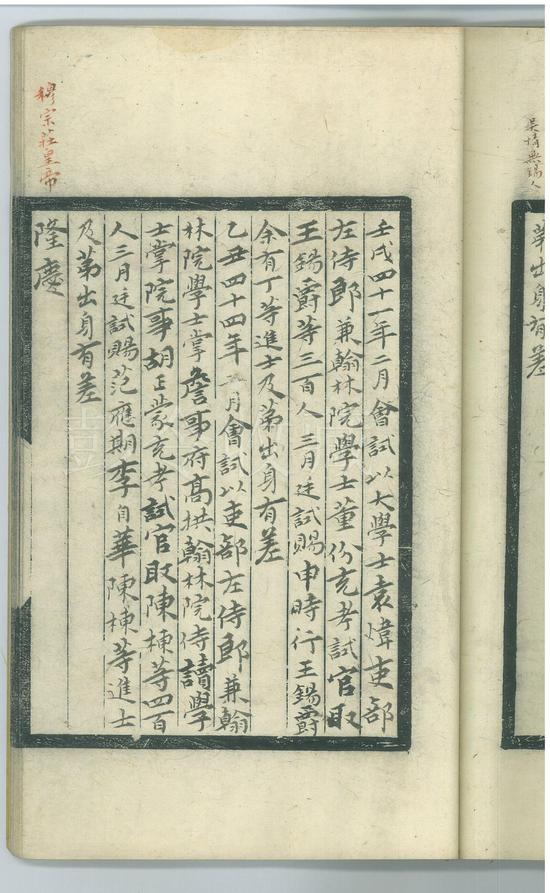 吳情無錫人
第出身有差
壬戌四十一年二月會試以大學士袁煒吏部
左侍郎兼翰林院學士董份充考試官取
王錫爵等三百人三月廷試賜申時行王錫爵
余有丁等進士及第出身有差
乙丑四十四年二月會試以吏部左侍郎兼翰
林院學士掌詹事府高拱翰林院侍讀學
士掌院事胡正蒙充考試官取陳棟等四百
人三月廷試賜范應期李自華陳棟等進士
及第出身有差
隆慶
穆宗莊皇帝